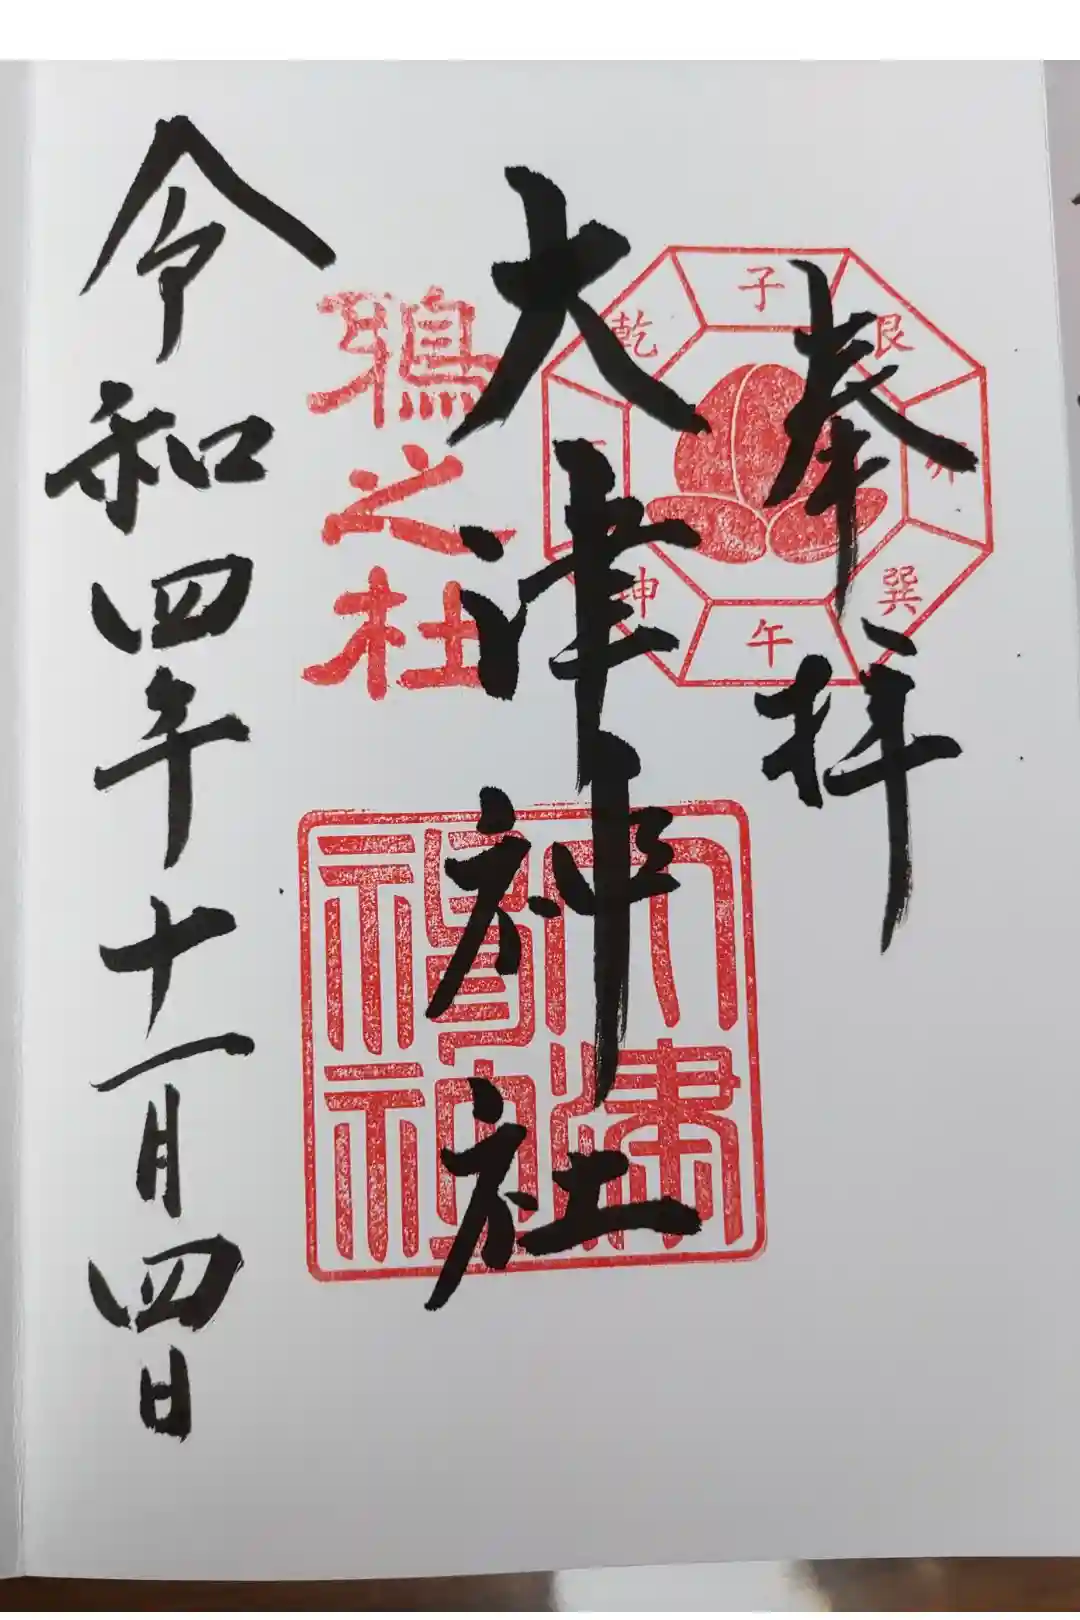 奉拝
子
艮
巽
午
坤
乾
大津神社
鴉之杜
大津
令和四年十一月四日